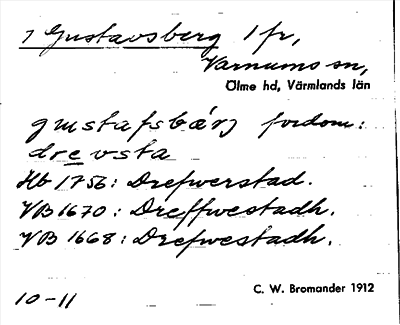 7 Gustavsberg 1 fr,
Varnums sn,
Ölme hd, Värmlands län
gustafsbærj fordom:
drevsta
Hb 1756: Drefwerstad.
VB 1670: Dreffwestadh.
VB 1668: Drefwestadh.
C. W. Bromander 1912
10-11